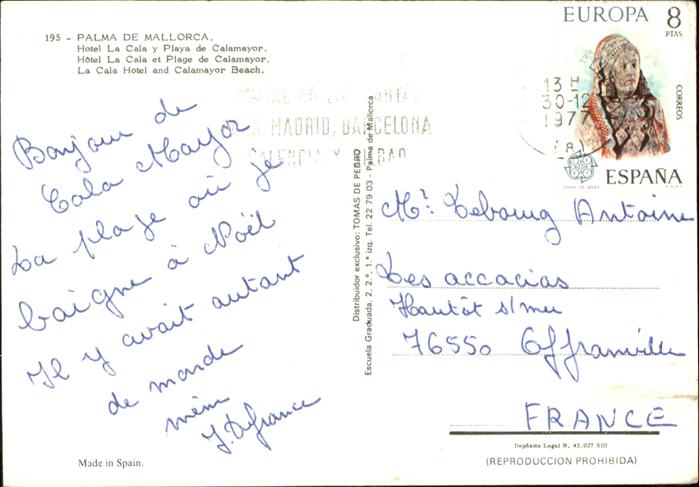 195 - PALMA DE MALLORCA.
Hotel La Cala y Playa de Calamayor.
Hôtel La Cala et Plage de Calamayor.
La Cala Hotel and Calamayor Beach.
Bonjour de
Cala Mayor
La plage où je
baigne à Noël
Il y avait autant
de monde
même
J. Defrance
Made in Spain.
Distribuidor exclusivo: TOMAS DE PEDRO
Escuela Graduada, 2, 2.º, 1.ª izq. Tel. 22 79 03 - Palma de Mallorca
EUROPA 8
PTAS
CORREOS
ESPAÑA
DAMA DE BAZA
13 H
30-12
1977
(8)
MADRID, BARCELONA
VALENCIA Y BILBAO
Mr. Lebourg Antoine
Les accacias
Hautôt s/mer
76550 Offranville
FRANCE
Depósito Legal B. 42.027 XIII
(REPRODUCCION PROHIBIDA)